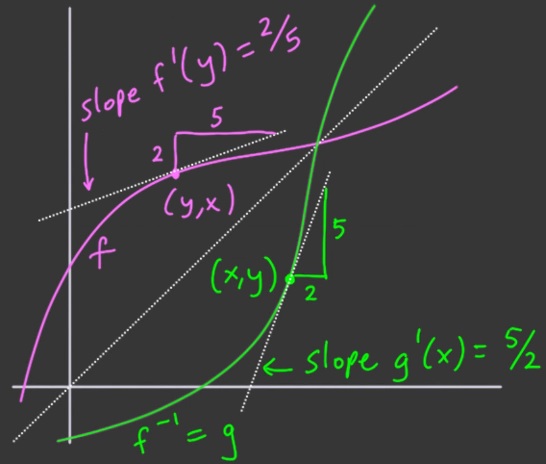 slope f'(y) = 2/5
5
2
(y,x)
f
(x,y)
5
2
← slope g'(x) = 5/2
f⁻¹ = g